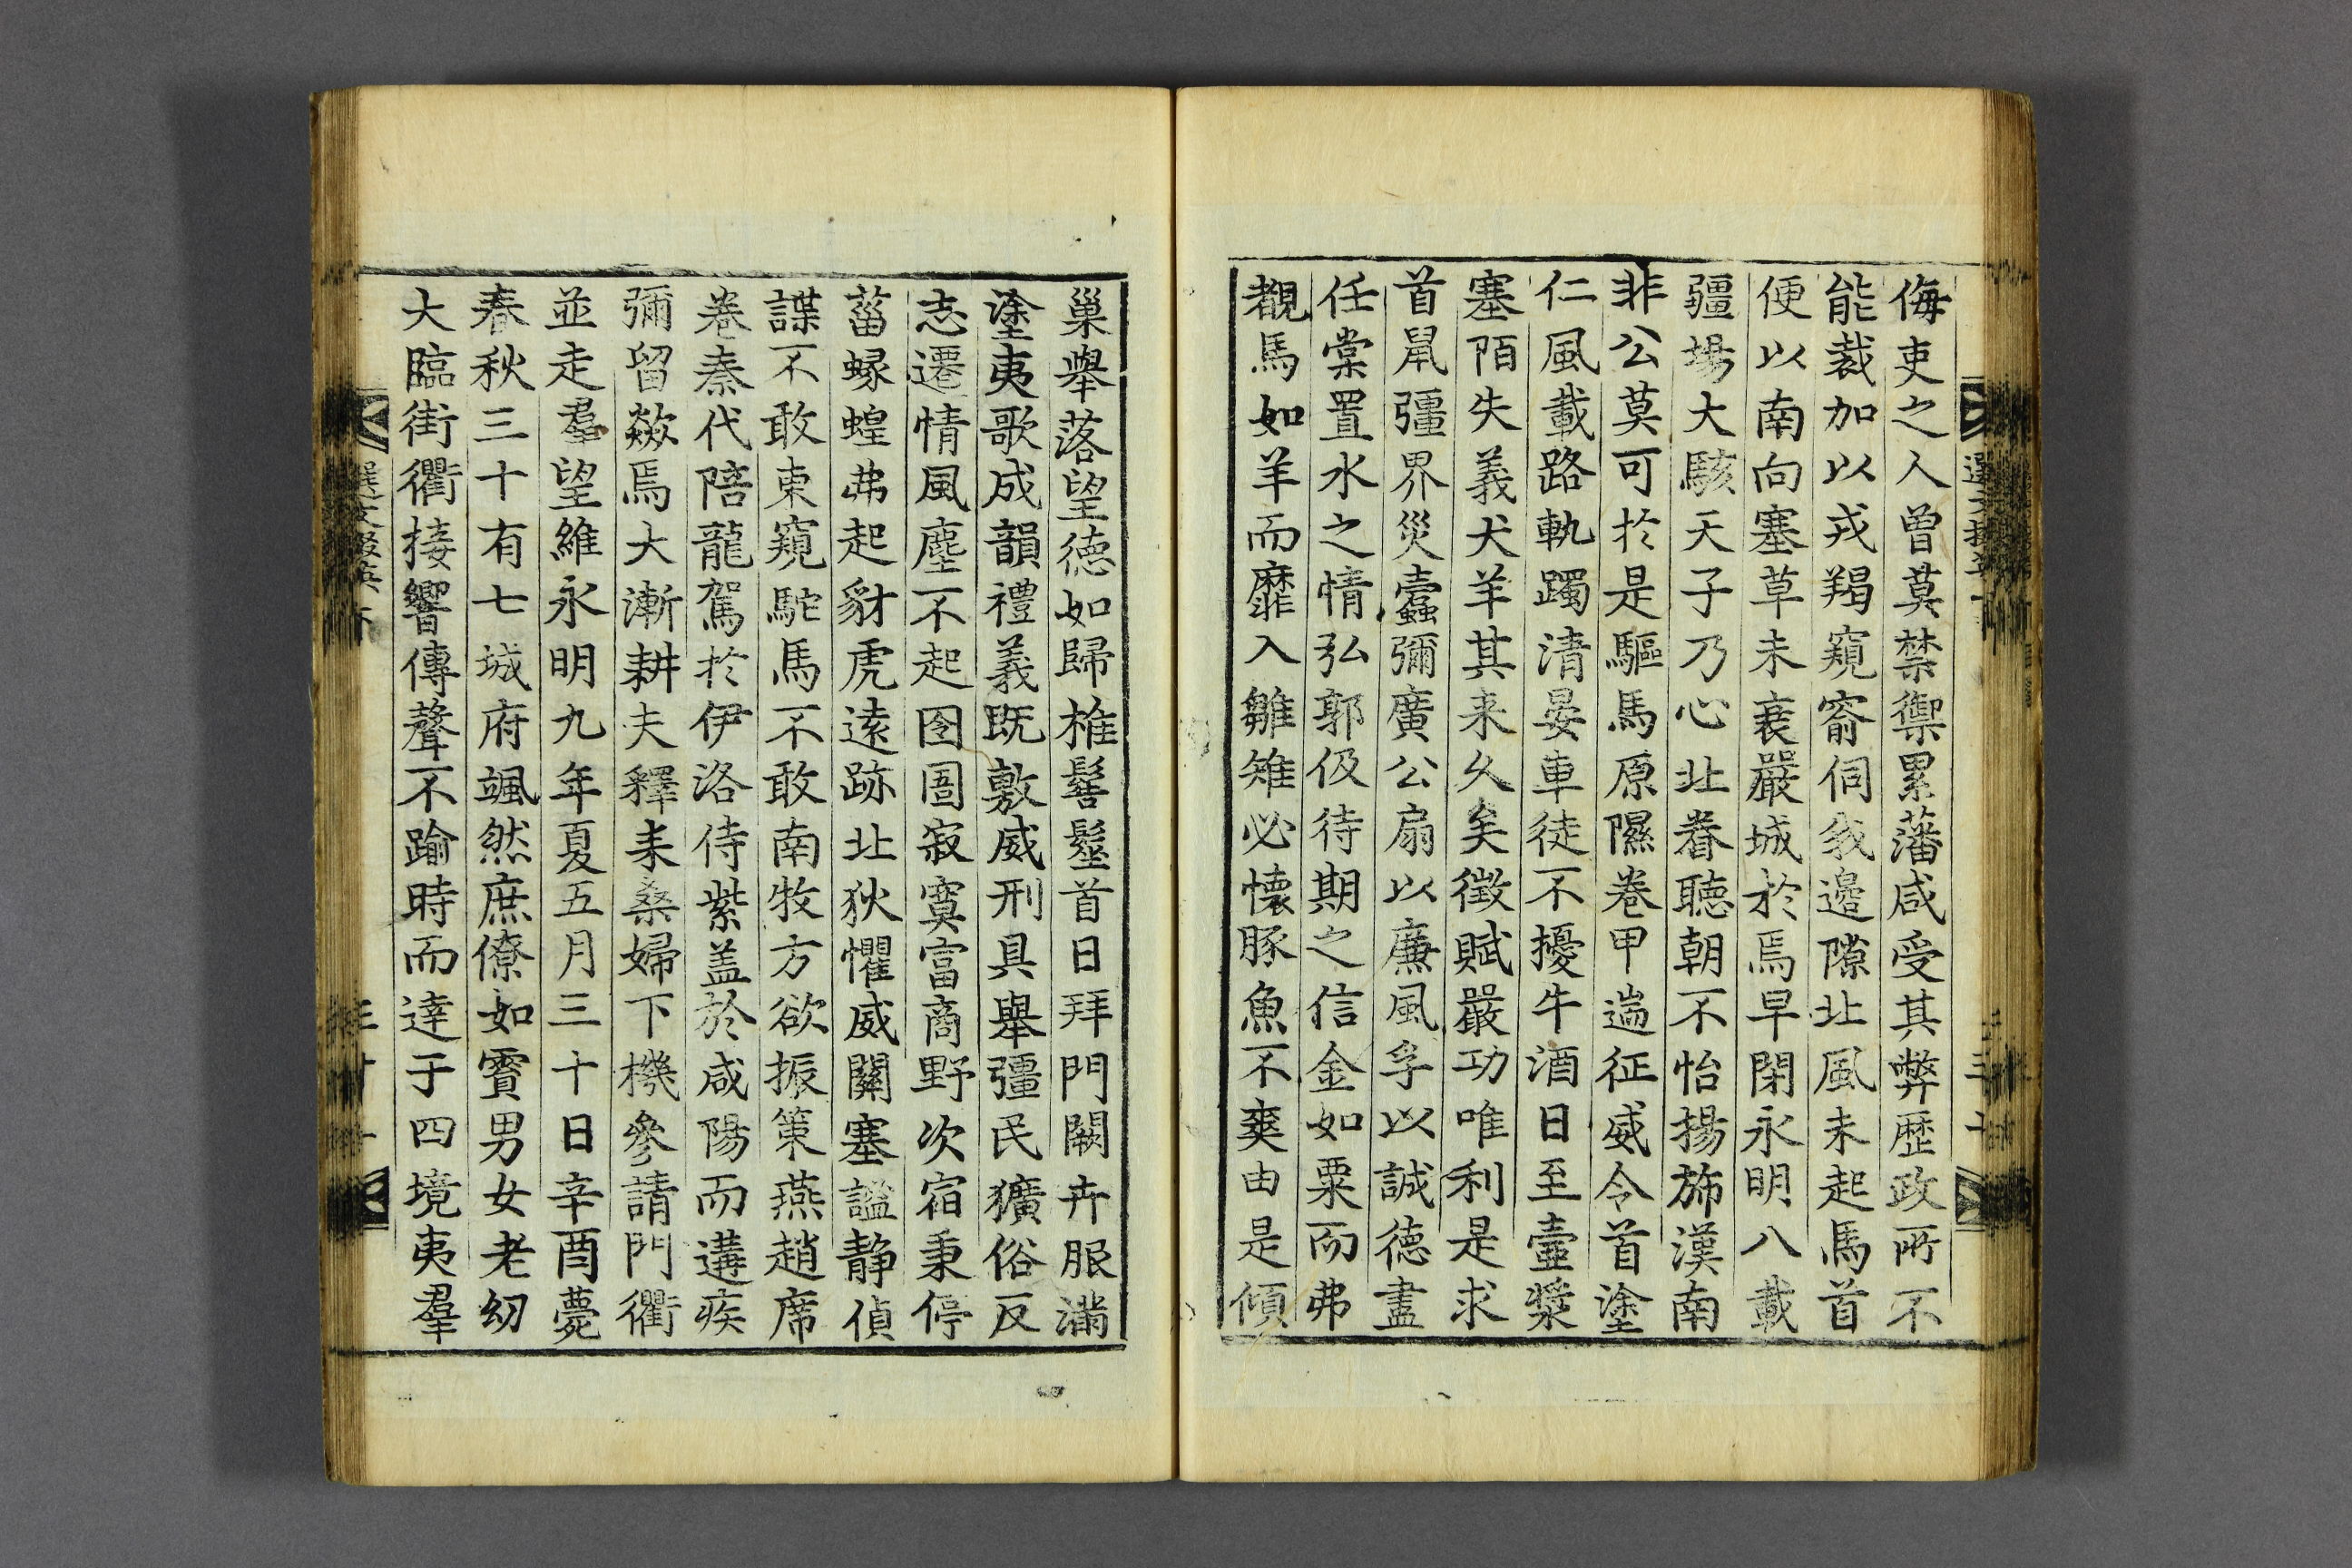 侮吏之人曾莫禁禦累藩咸受其弊歷政所不
能裁加以戎羯窺窬伺我邊隙北風未起馬首
便以南向塞草未衰嚴城於焉早閉永明八載
疆場大駭天子乃心北眷聽朝不怡揚旆漢南
非公莫可於是驅馬原隰卷甲遄征威令首塗
仁風載路軌躅清晏車徒不擾牛酒日至壺漿
塞陌失義犬羊其来久矣徵賦嚴切唯利是求
首鼠彊界災蠹彌廣公扇以廉風孚以誠德盡
任棠置水之情弘郭伋待期之信金如粟而弗
覩馬如羊而靡入雛雉必懷豚魚不爽由是傾
巢舉落望德如歸椎髻髽首日拜門闕卉服滿
塗夷歌成韻禮義既敷威刑具舉彊民獷俗反
志遷情風塵不起囹圄寂寞富商野次宿秉停
菑蝝蝗弗起豺虎遠跡北狄懼威關塞謐静偵
諜不敢東窺駝馬不敢南牧方欲振策燕趙席
卷秦代陪龍駕於伊洛侍紫盖於咸陽而遘疾
彌留歘焉大漸耕夫釋耒桑婦下機參請門衢
並走羣望維永明九年夏五月三十日辛酉薨
春秋三十有七城府颯然庶僚如霣男女老幼
大臨街衢接響傳聲不踰時而達于四境夷羣